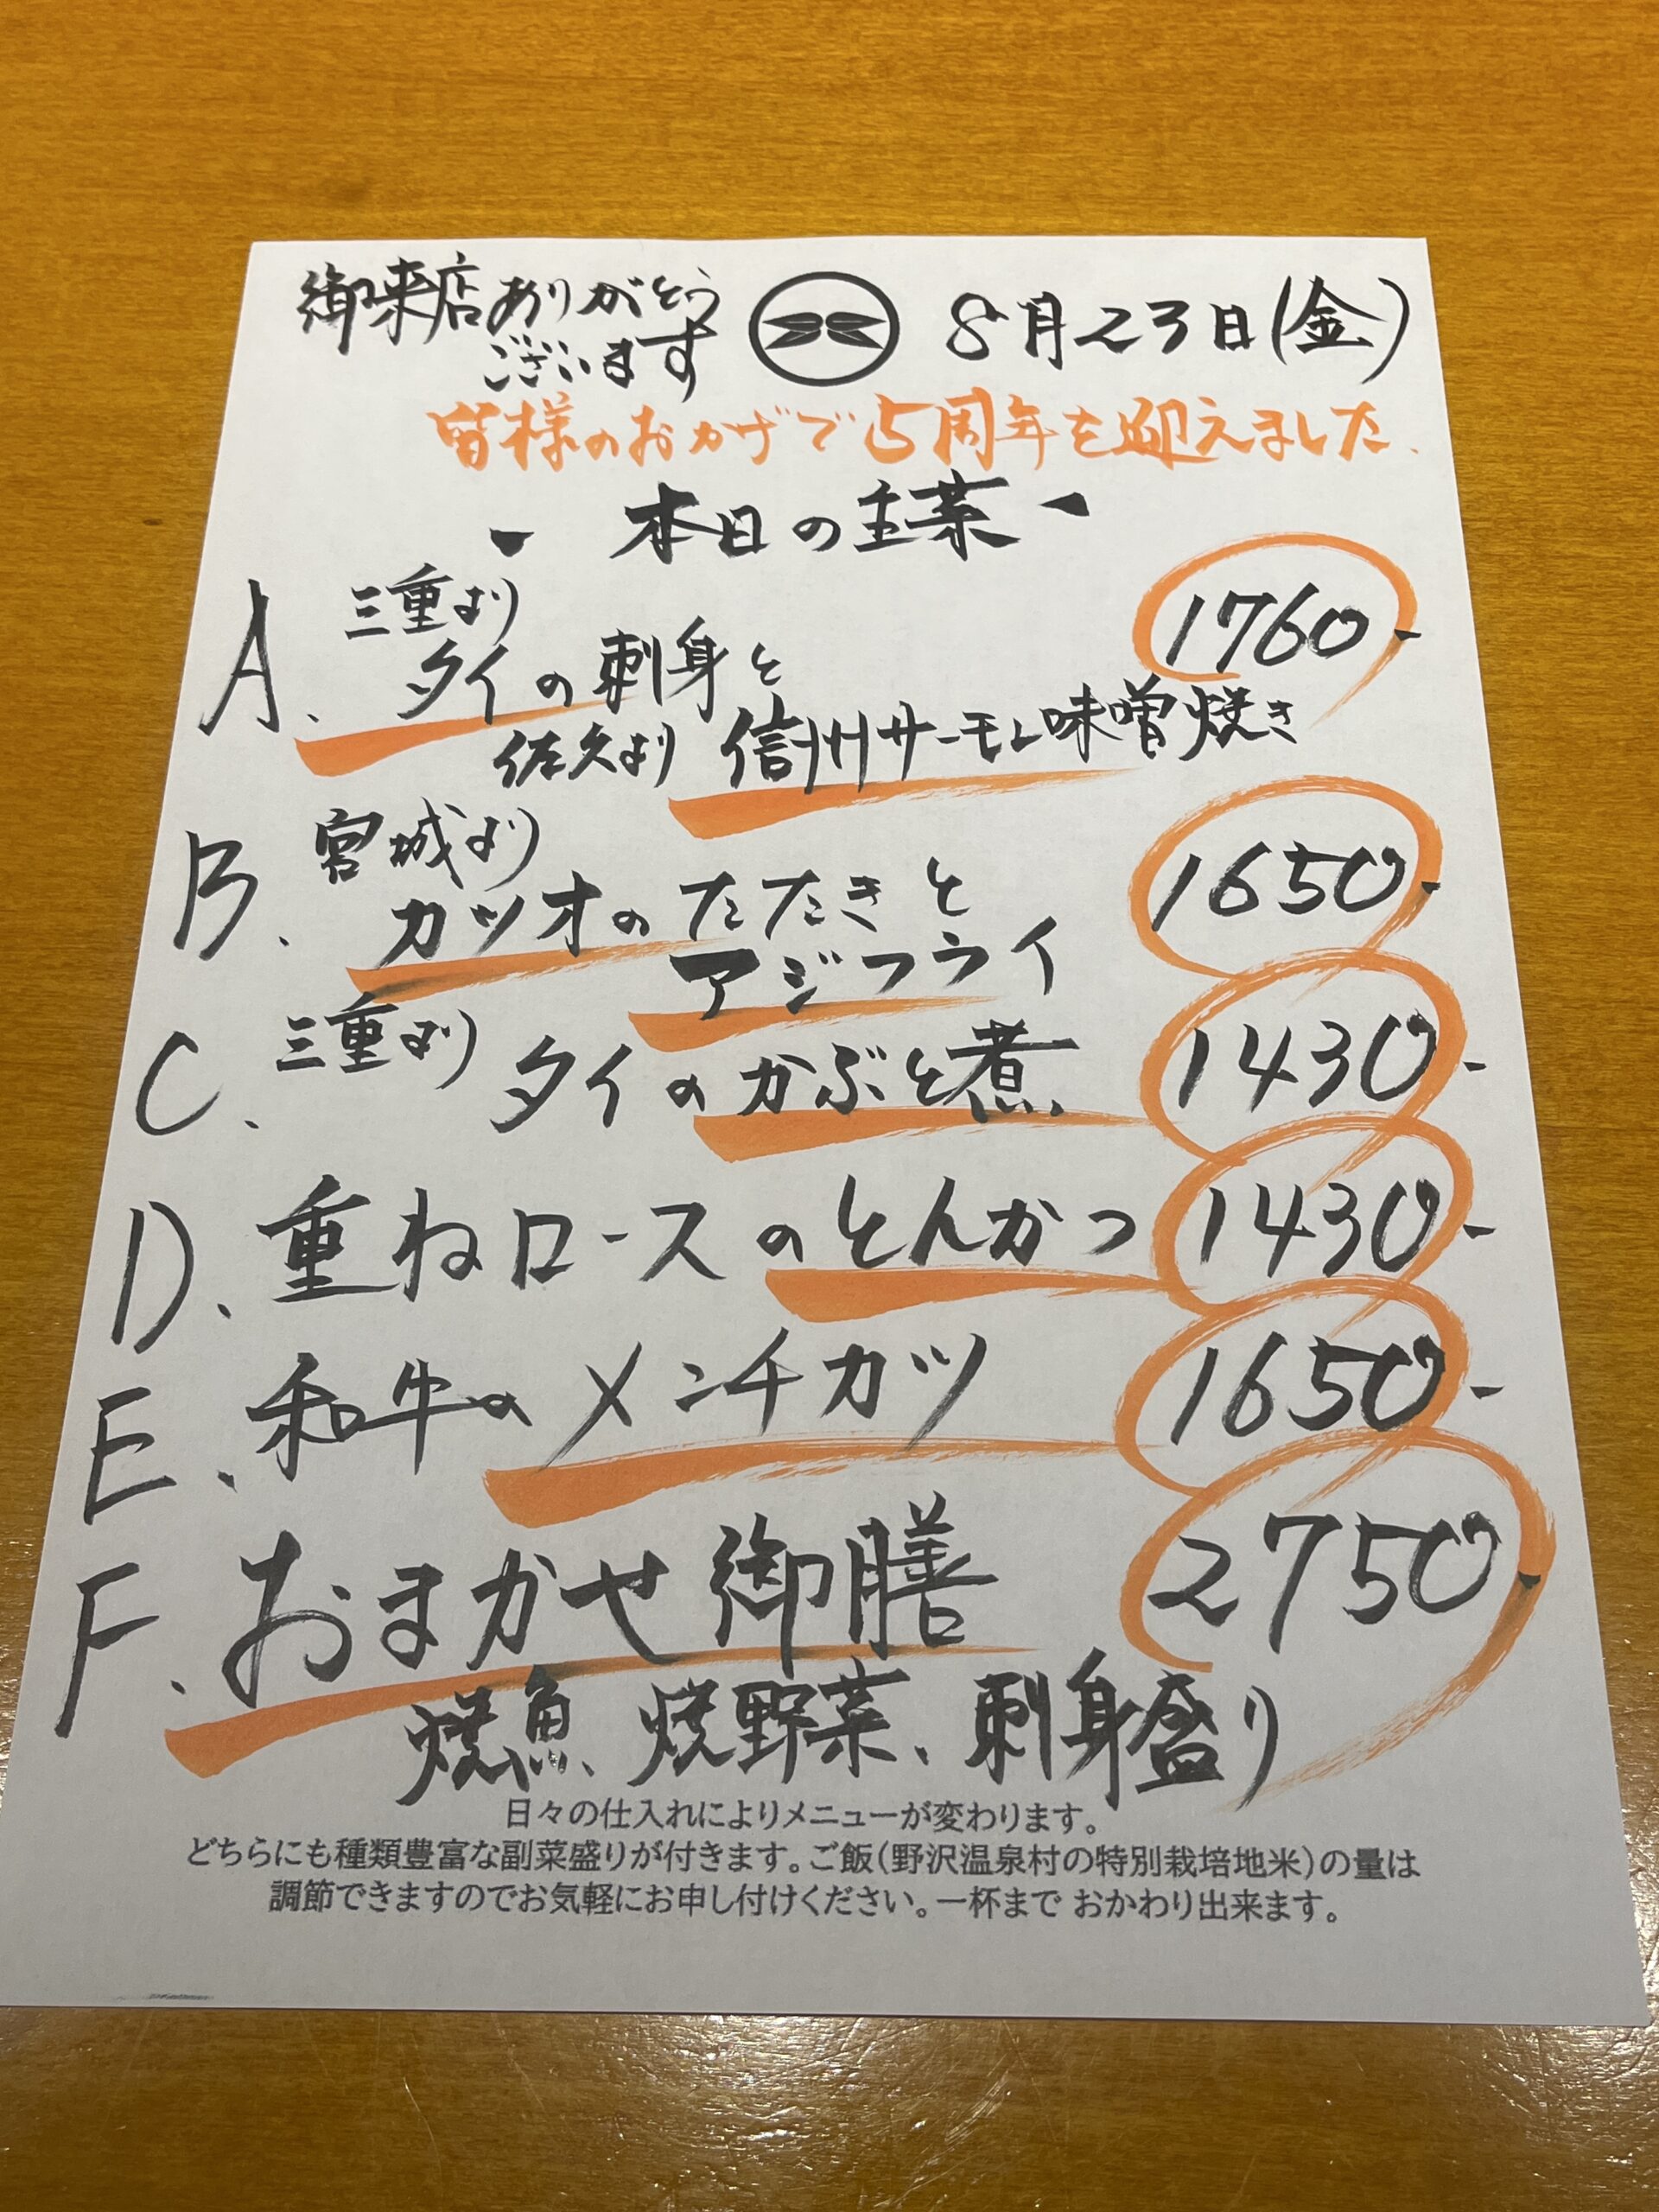 御来店ありがとう
ございます
8月23日(金)
皆様のおかげで5周年を迎えました、
- 本日の主菜 -
A. 三重より
タイの刺身と
1760-
佐久より 信州サーモン味噌焼き
B. 宮城より
カツオのたたきと
1650-
アジフライ
C. 三重より タイのかぶと煮 1430-
D. 重ねロースのとんかつ 1430-
E. 和牛のメンチカツ 1650-
F. おまかせ御膳 2750-
焼魚、焼野菜、刺身盛り
日々の仕入れによりメニューが変わります。
どちらにも種類豊富な副菜盛りが付きます。ご飯(野沢温泉村の特別栽培地米)の量は
調節できますのでお気軽にお申し付けください。一杯まで おかわり出来ます。